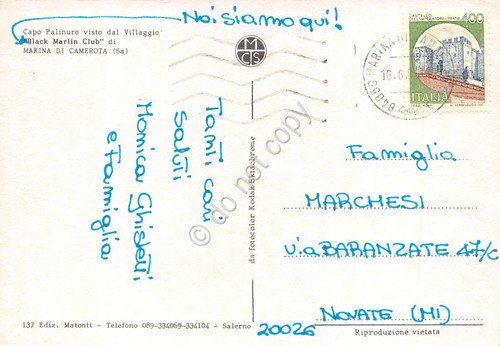 Noi siamo qui!
Capo Palinuro visto dal Villaggio
"Black Marlin Club" di
MARINA DI CAMEROTA (Sa)
MCS
CASTELLO
DELL'IMPERATORE - PRATO
400
ITALIA
84059 MARINA
16.8
Tanti cari
saluti
Monica Ghisletti
e famiglia
do not copy
da fotocolor Kodak Ektachrome
Famiglia
MARCHESI
via BARANZATE 47/c
NOVATE (MI)
20026
137 Ediz. Matonti - Telefono 089-334069-334104 - Salerno
Riproduzione vietata